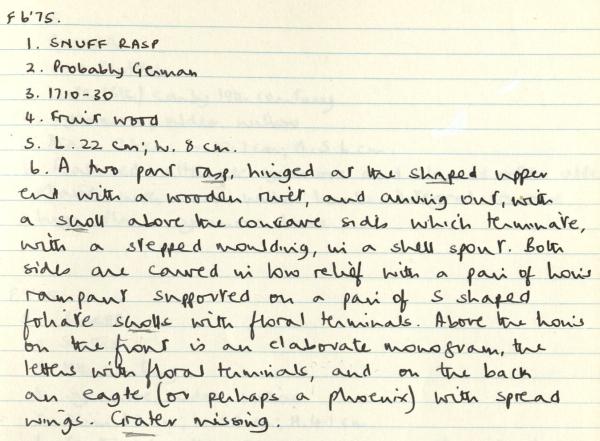 F b'75.
1. SNUFF RASP
2. Probably German
3. 1710-30
4. Fruit wood
5. L. 22 cm; W. 8 cm.
6. A two part rasp, hinged at the shaped upper
end with a wooden rivet, and curving out, with
a scroll above the concave sides which terminate,
with a stepped moulding, in a shell spout. Both
sides are carved in low relief with a pair of lions
rampant supported on a pair of S shaped
foliate scrolls with floral terminals. Above the lions
on the front is an elaborate monogram, the
letters with floral terminals, and on the back
an eagle (or perhaps a phoenix) with spread
wings. Grater missing.